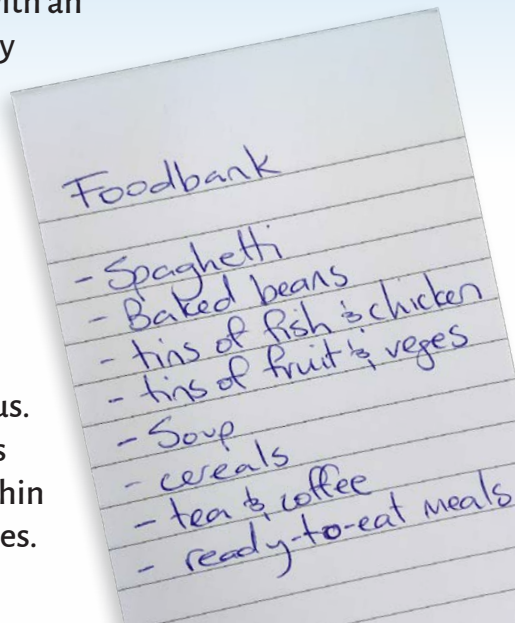 ith an
y
Foodbank
- Spaghetti
- Baked beans
- tins of fish & chicken
- tins of fruit & veges
- Soup
- cereals
- tea & coffee
- ready-to-eat meals
us.
s
hin
es.